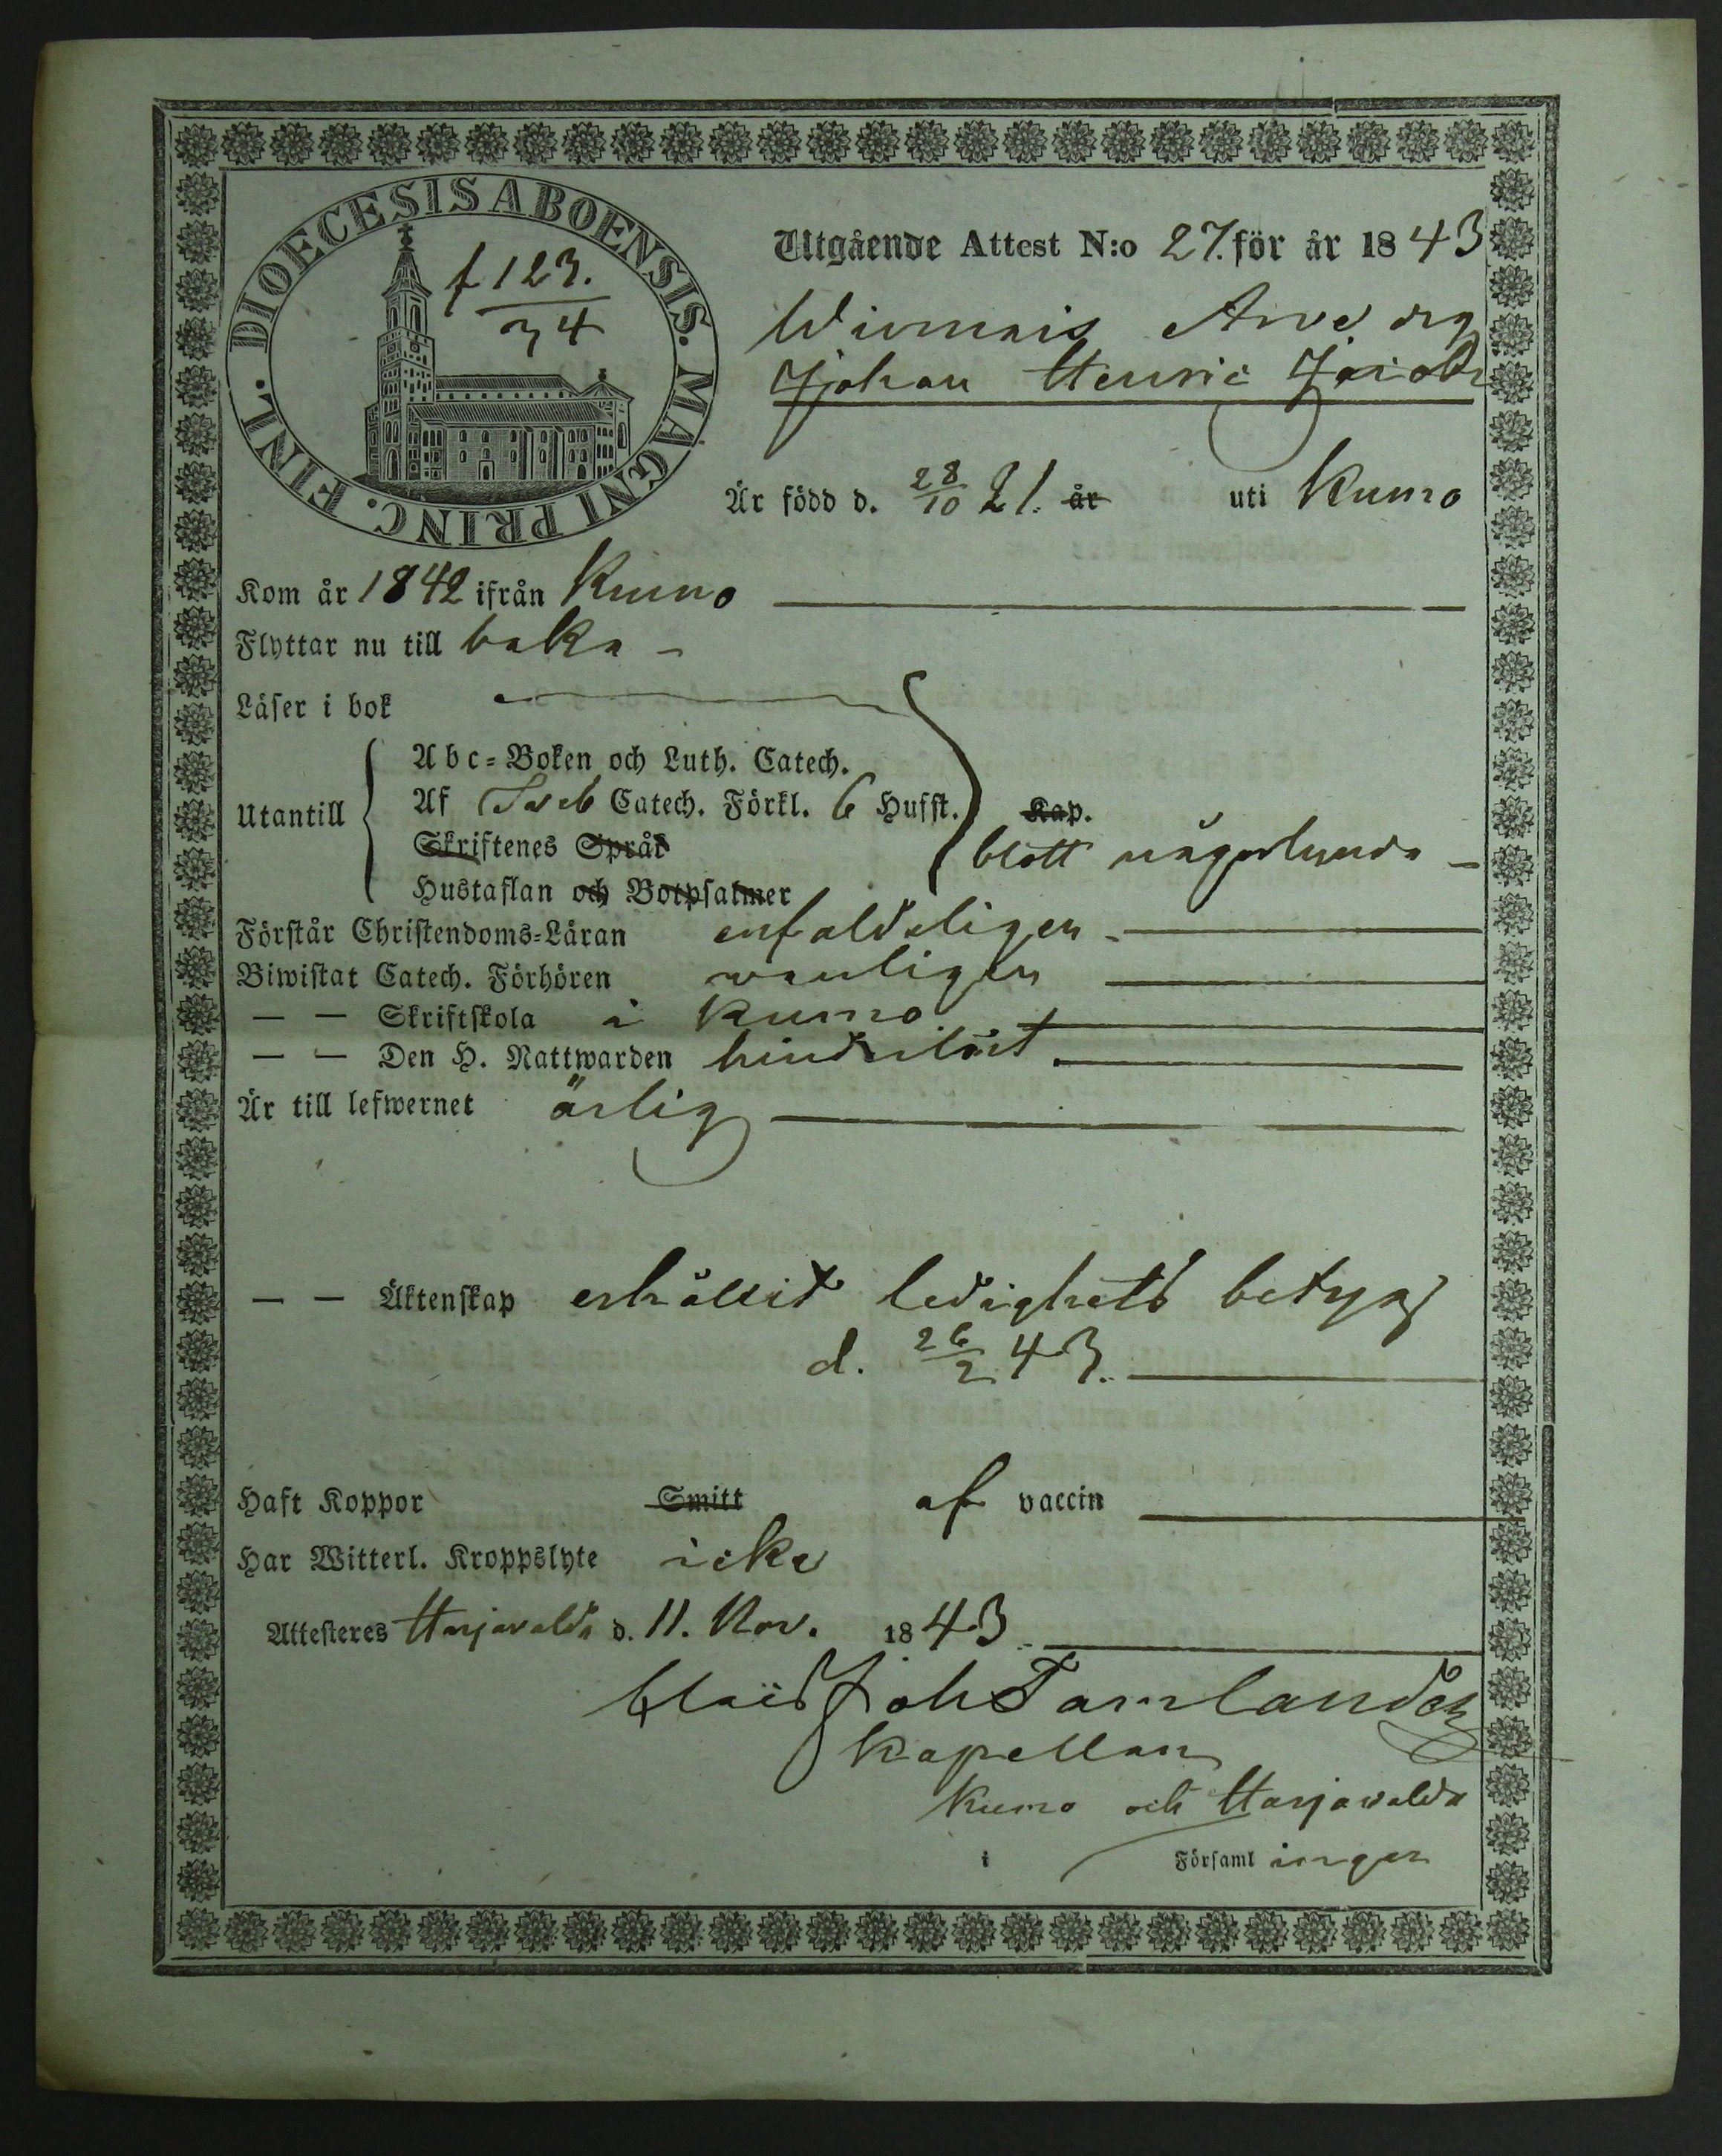 DIOECESIS ABOENSIS. MAGNI PRINC. FINL.
f 123.
34
Utgående Attest N:o 27. för år 1843
Johan Henric
Är född d. 28/10 21. år uti Kumo
Kom år 1842 ifrån Kumo
Flyttar nu till baka
Läser i bok
Utantill
Abc-Boken och Luth. Catech.
Af Sveb Catech. Förkl. 6 Hufst. Kap.
Skriftenes Språk blott någorlunda
Hustaflan och Botpsalmer
Förstår Christendoms-Läran enfaldeligen
Biwistat Catech. Förhören vanligen
— — Skriftskola i Kumo
— — Den H. Nattwarden hinderlöst
Är till lefwernet ärlig
— — Äktenskap erhållit ledighets betyg
d. 26/2 43.
Haft Koppor Smitt af vaccin
Har Witterl. Kroppslyte icke
Attesteres Harjavalda d. 11. Nov. 1843
Joh Tamlander
Kapellan
Kumo och Harjavalda
i Församlingar